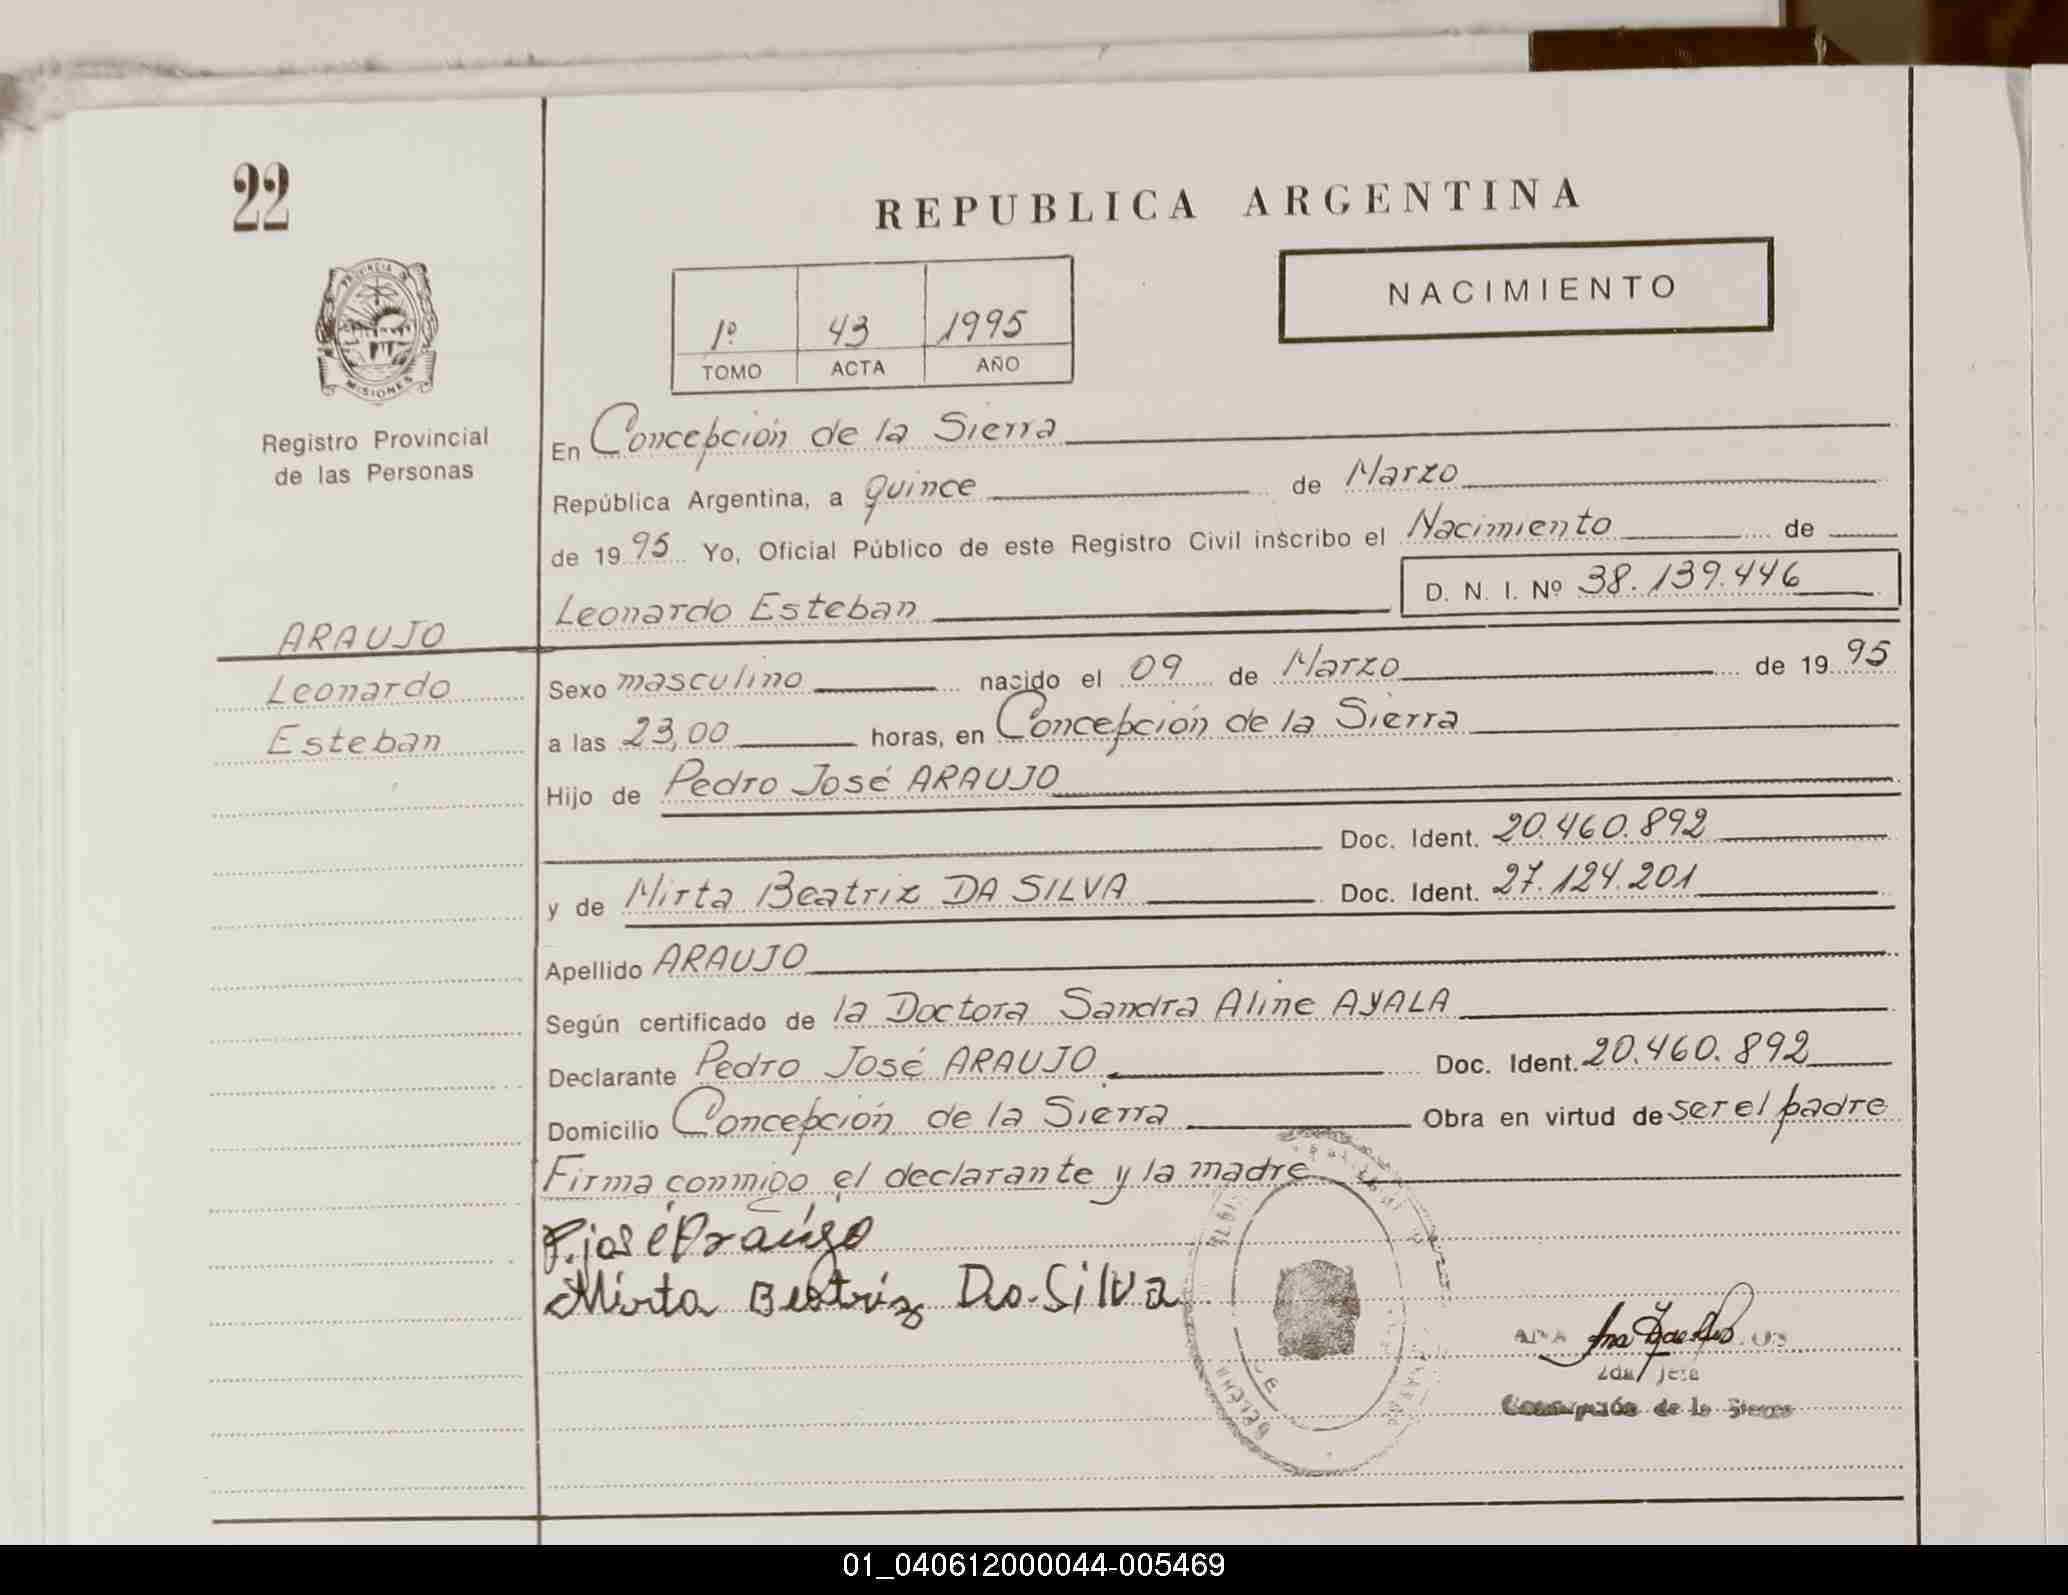 22
REPUBLICA ARGENTINA
NACIMIENTO
1º 43 1995
TOMO ACTA AÑO
PROVINCIA DE
MISIONES
Registro Provincial
de las Personas
En Concepción de la Sierra
República Argentina, a quince de Marzo
de 1995 Yo, Oficial Público de este Registro Civil inscribo el Nacimiento de
Leonardo Esteban D. N. I. Nº 38.139.446
ARAUJO
Leonardo
Esteban
Sexo masculino nacido el 09 de Marzo de 1995
a las 23,00 horas, en Concepción de la Sierra
Hijo de Pedro José ARAUJO
Doc. Ident. 20.460.892
y de Mirta Beatriz DA SILVA Doc. Ident. 27.124.201
Apellido ARAUJO
Según certificado de la Doctora Sandra Aline AYALA
Declarante Pedro José ARAUJO Doc. Ident. 20.460.892
Domicilio Concepción de la Sierra Obra en virtud de ser el padre
Firma conmigo el declarante y la madre
P. josé Araujo
Mirta Beatriz Da. Silva
ANA
Concepción de la Sierra
01_040612000044-005469